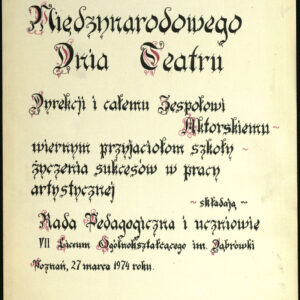 Międzynarodowego
Dnia Teatru
Dyrekcji i całemu Zespołowi
Aktorskiemu ~
wiernym przyjaciołom szkoły ~
~ życzenia sukcesów w pracy
artystycznej
~ składają ~
Rada Pedagogiczna i uczniowie
VII Liceum Ogólnokształcącego im. Dąbrówki
Poznań, 27 marca 1974 roku.